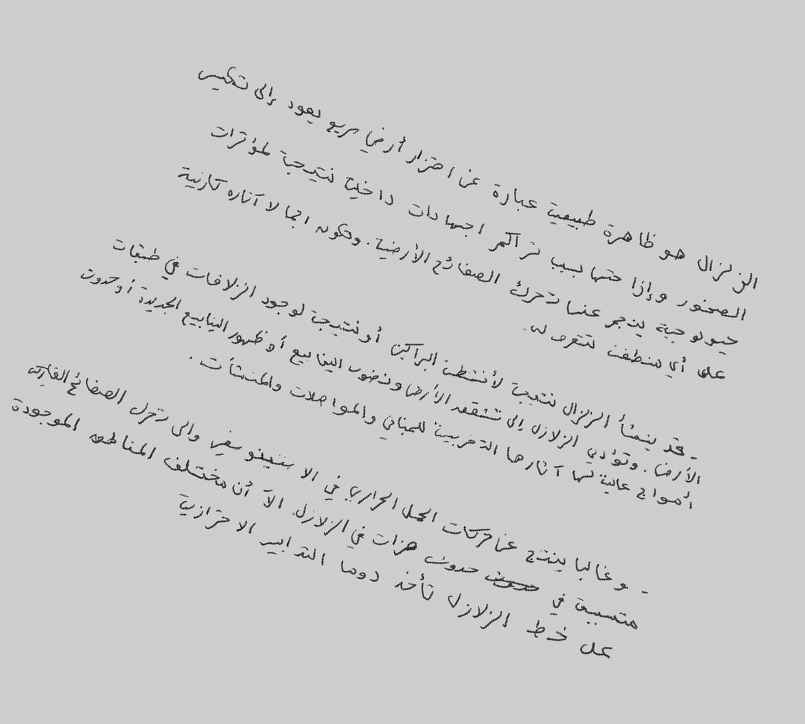 الزلزال هو ظاهرة طبيعية عبارة عن اهتزاز أرضي سريع يعود إلى تكسر
الصخور وإزاحتها بسبب تراكم اجهادات داخلية نتيجة لمؤثرات
جيولوجية ينجم عنها تحرك الصفائح الأرضية. وتكون اجمالا آثاره كارثية
على أي منطقة تتعرض له.
- قد ينشأ الزلزال نتيجة لأنشطة البراكين أو نتيجة لوجود انزلاقات في طبقات
الأرض. وتؤدي الزلازل إلى تشقق الأرض ونضوب الينابيع أو ظهور الينابيع الجديدة أو حدوث
أمواج عالية لها آثارها التخريبية للمباني والمواصلات والمنشآت.
- وغالبا ينتج عن حركات الحمل الحراري في الاستينوسفير والى تحرك الصفائح القارية
متسببة في حدوث هزات في الزلازل. الآ أن مختلف المناطق الموجودة
على خط الزلازل تأخذ دوما التدابير الاحترازية